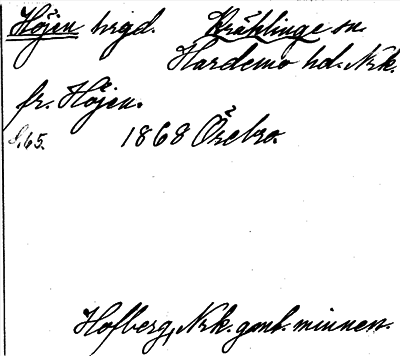 Höjen hrgd. Kräklinge sn.
Hardemo hd. Nrk.
fr. Höjen.
S. 65. 1868 Örebro.
Hofberg, Nrk. gml. minnen.